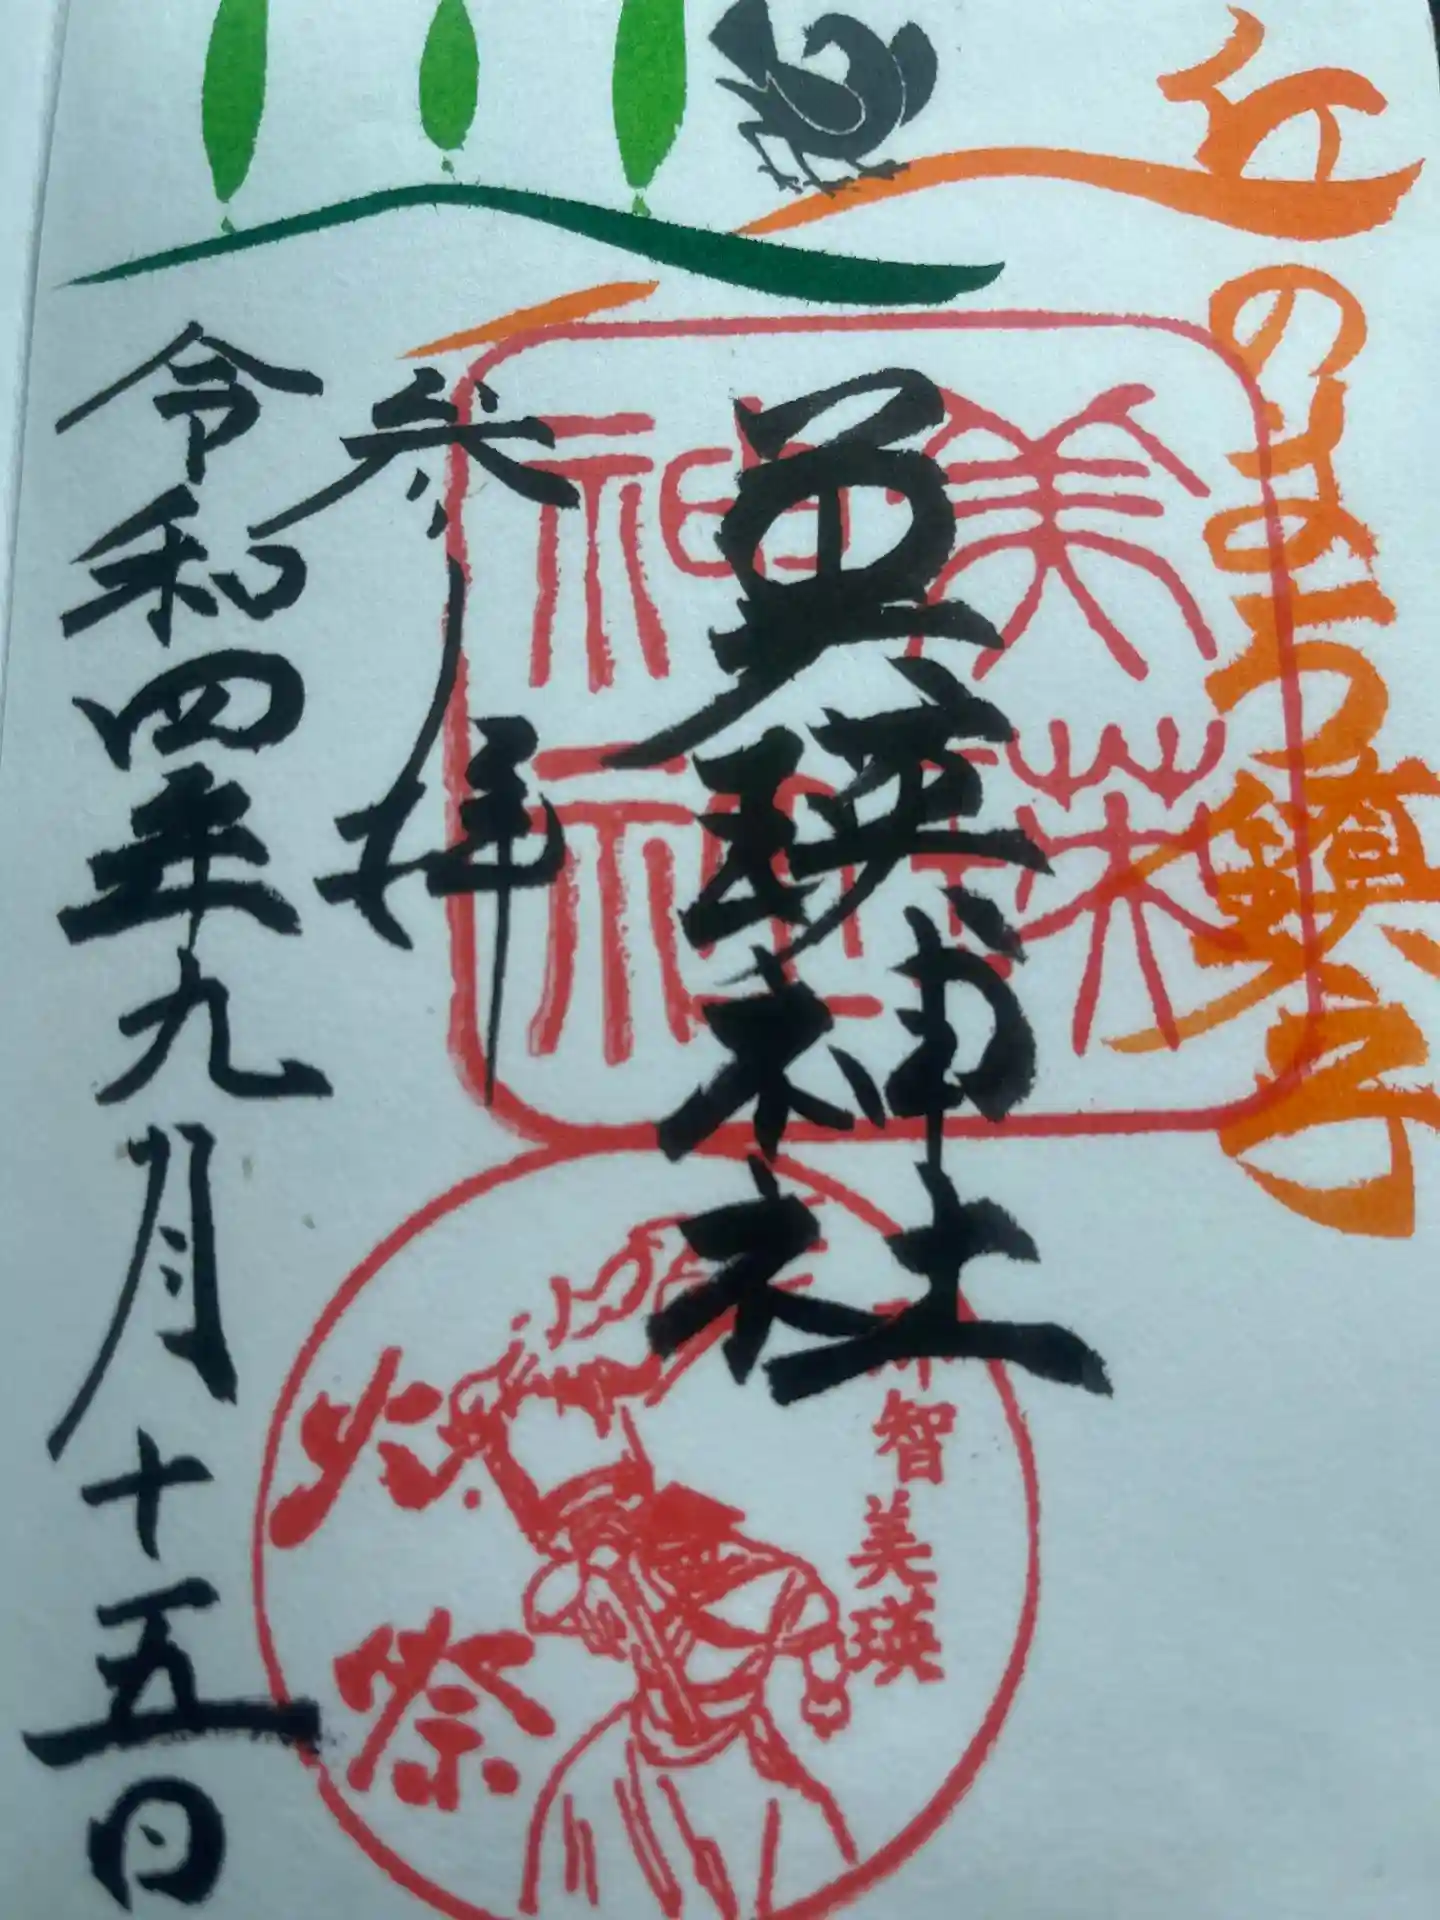 丘のまち鎮守
美瑛神社
美瑛神社
参拝
令和四年九月十五日
那智美瑛
火祭